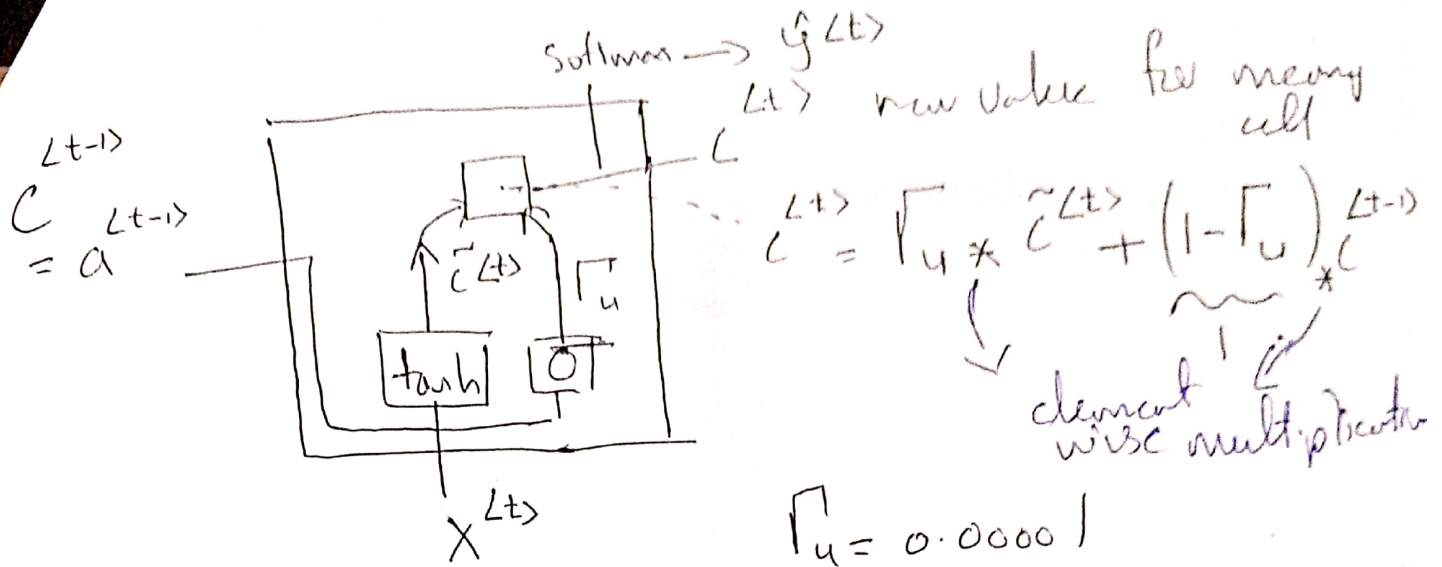 Softmax → ŷ<t>
c<t> new value for memory
cell
c<t-1>
= a<t-1>
c̃<t>
Γu
tanh
σ
x<t>
c<t> = Γu * c̃<t> + (1-Γu) * c<t-1>
element
wise multiplication
Γu = 0.00001